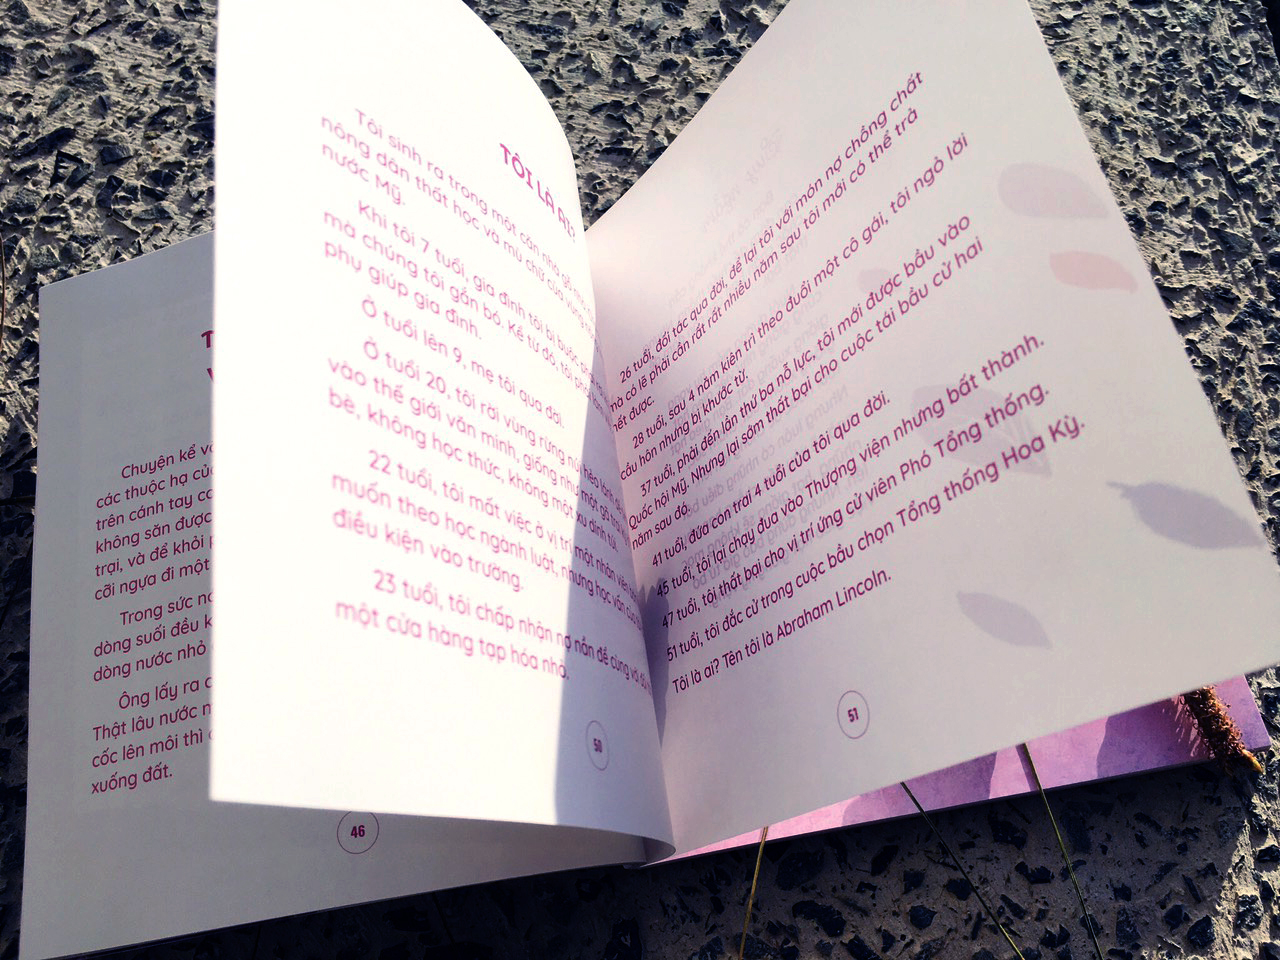 Chuyện kể
các thuộc hạ
trên cánh tay
không săn được
trại, và để khỏi
cõi ngựa đi một
Trong sức
dòng suối đều
dòng nước nhỏ
Ông lấy ra
Thật lâu nước
cốc lên môi thì
xuống đất.
46
TÔI LÀ AI?
Tôi sinh ra trong một căn nhà gỗ
nông dân thất học và mù chữ của vùng
nước Mỹ.
Khi tôi 7 tuổi, gia đình tôi bị buộc phải
mà chúng tôi gắn bó. Kể từ đó, tôi
phụ giúp gia đình.
Ở tuổi lên 9, mẹ tôi qua đời.
Ở tuổi 20, tôi rời vùng rừng núi hẻo lánh
vào thế giới văn minh, giống như một gã
bè, không học thức, không một xu dính túi.
22 tuổi, tôi mất việc ở vị trí một nhân viên
muốn theo học ngành luật, nhưng học vấn của
điều kiện vào trường.
23 tuổi, tôi chấp nhận nợ nần để cùng với
một cửa hàng tạp hóa nhỏ.
50
26 tuổi, đối tác qua đời, để lại tôi với món nợ chồng chất
mà có lẽ phải cần rất rất nhiều năm sau tôi mới có thể trả
hết được.
28 tuổi, sau 4 năm kiên trì theo đuổi một cô gái, tôi ngỏ lời
cầu hôn nhưng bị khước từ.
37 tuổi, phải đến lần thứ ba nỗ lực, tôi mới được bầu vào
Quốc hội Mỹ. Nhưng lại sớm thất bại cho cuộc tái bầu cử hai
năm sau đó.
41 tuổi, đứa con trai 4 tuổi của tôi qua đời.
45 tuổi, tôi lại chạy đua vào Thượng viện nhưng bất thành.
47 tuổi, tôi thất bại cho vị trí ứng cử viên Phó Tổng thống.
51 tuổi, tôi đắc cử trong cuộc bầu chọn Tổng thống Hoa Kỳ.
Tôi là ai? Tên tôi là Abraham Lincoln.
51